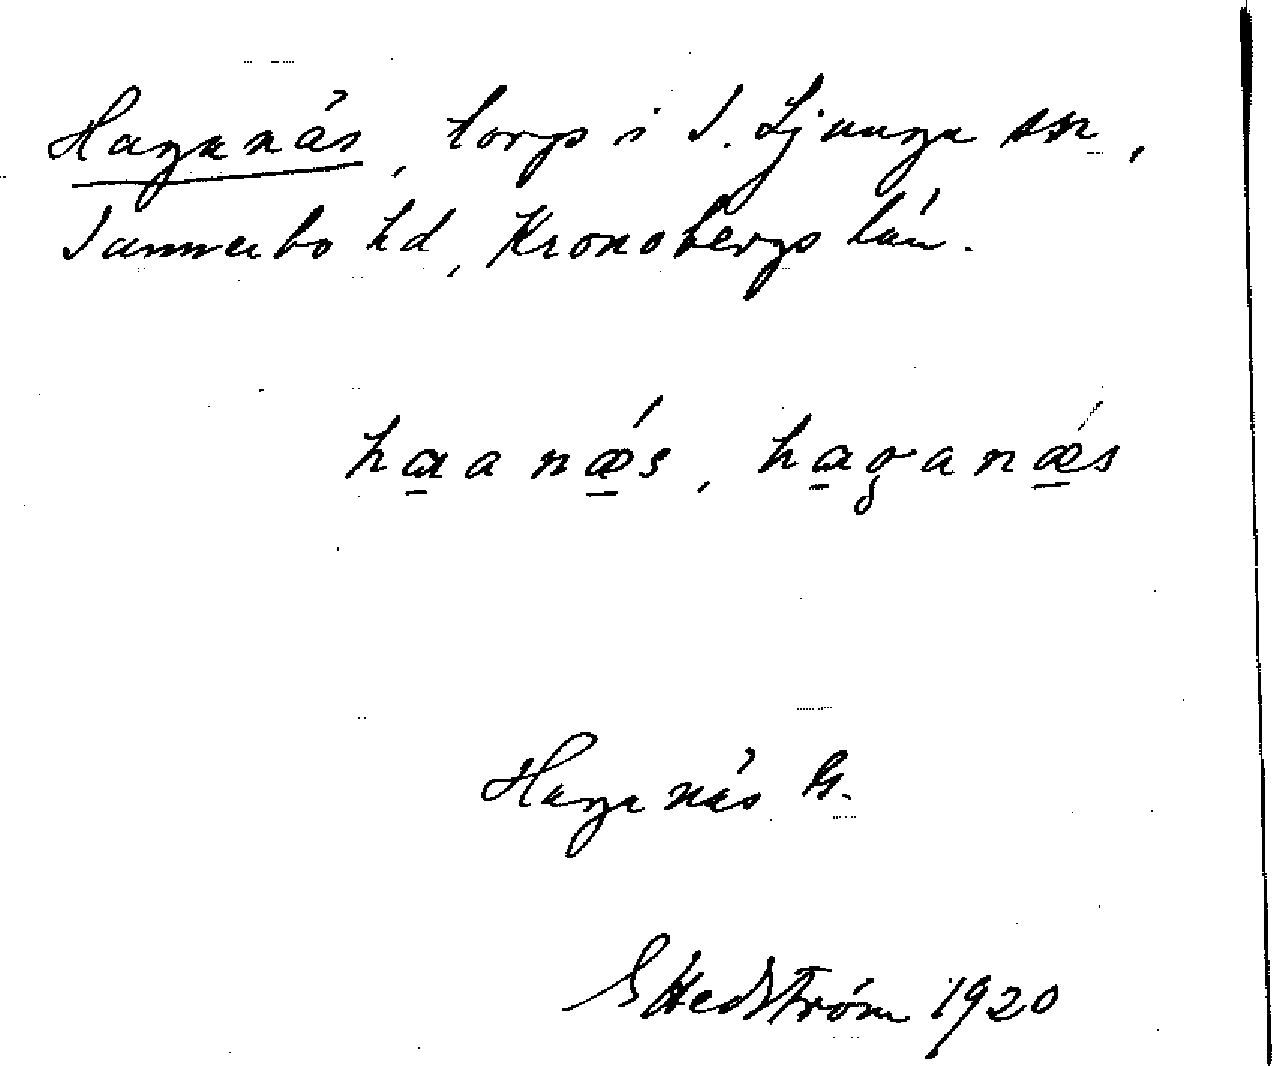 Haganäs, torp i S. Ljunga sn,
Sunnerbo hd, Kronobergs län.
haanæs, haganæs
Haganäs G.
G Hedström 1920